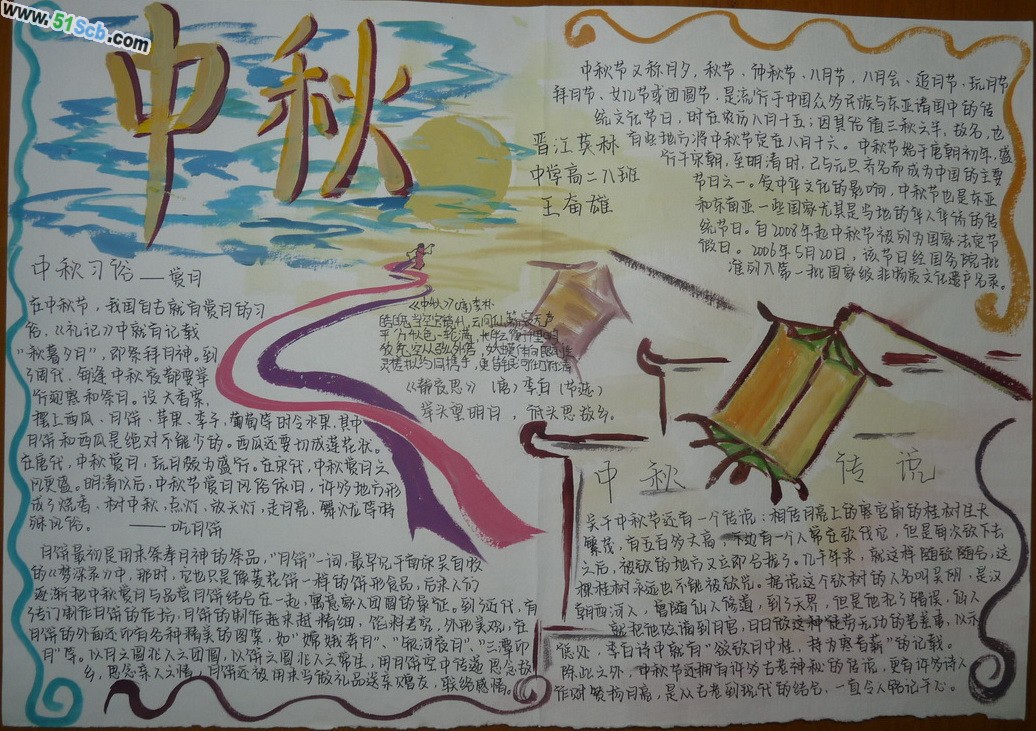 www.51Scb.com
中秋
中秋节又称月夕，秋节、仲秋节、八月节，八月会、追月节、玩月节
拜月节、女儿节或团圆节，是流行于中国众多民族与东亚诸国中的传
统文化节日，时在农历八月十五；因其恰值三秋之半，故名，也
有些地方将中秋节定在八月十六。中秋节始于唐朝初年，盛
行于宋朝，至明清时，已与元旦齐名而成为中国的主要
节日之一。受中华文化的影响，中秋节也是东亚
和东南亚一些国家尤其是当地的华人华侨的传
统节日。自2008年起中秋节被列为国家法定节
假日。2006年5月20日，该节日经国务院批
准列入第一批国家级非物质文化遗产名录。
晋江英林
中学高二八班
王奋雄
中秋习俗——赏月
在中秋节，我国自古就有赏月的习
俗，《礼记》中就有记载
“秋暮夕月”，即祭拜月神。到
了周代，每逢中秋夜都要举
行迎寒和祭月。设大香案，
摆上西瓜、月饼、苹果、李子、葡萄等时令水果，其中
月饼和西瓜是绝对不能少的。西瓜还要切成莲花状。
在唐代，中秋赏月，玩月颇为盛行。在宋代，中秋赏月之
风更盛。明清以后，中秋节赏月风俗依旧，许多地方形
成了烧香、树中秋，点灯，放天灯，走月亮，舞火龙等特
殊风俗。——吃月饼
月饼最初是用来祭奉月神的祭品，“月饼”一词，最早见于南宋吴自牧
的《梦梁录》中，那时，它也只是像菱花饼一样的饼形食品，后来人们
逐渐把中秋赏月与品尝月饼结合在一起，寓意家人团圆的象征。到了近代，有
了专门制作月饼的作坊，月饼的制作越来越精细，馅料考究，外形美观，在
月饼的外面还印有各种精美的图案，如“嫦娥奔月”、“银河夜月”、“三潭印
月”等。以月之圆兆人之团圆，以饼之圆兆人之常生，用月饼寄托思念故
乡，思念亲人之情，月饼还被用来当做礼品送亲赠友，联络感情。
《中秋》（唐）李朴
皓魄当空宝镜升，云间仙籁寂无声
平分秋色一轮满，长伴云衢千里明
《静夜思》（唐）李白（节选）
举头望明月，低头思故乡。
中秋传说
关于中秋节还有一个传说：相传月亮上的寒宫前的桂树生长
繁茂，有五百多丈高，下边有一个人常在砍伐它，但是每次砍下去，
之后，被砍的地方又立即合拢了。几千年来，就这样随砍随合，这
棵桂树永远也不能被砍光。据说这个砍树的人名叫吴刚，是汉
朝西河人，曾随仙人修道，到了天界，但是他犯了错误，仙人
就把他贬谪到月宫，日日做这种徒劳无功的苦差事，以示
惩处，李白诗中就有“欲砍月中桂，持为寒者薪”的记载。
除此之外，中秋节还拥有许多古老神秘的传说，更有许多诗人